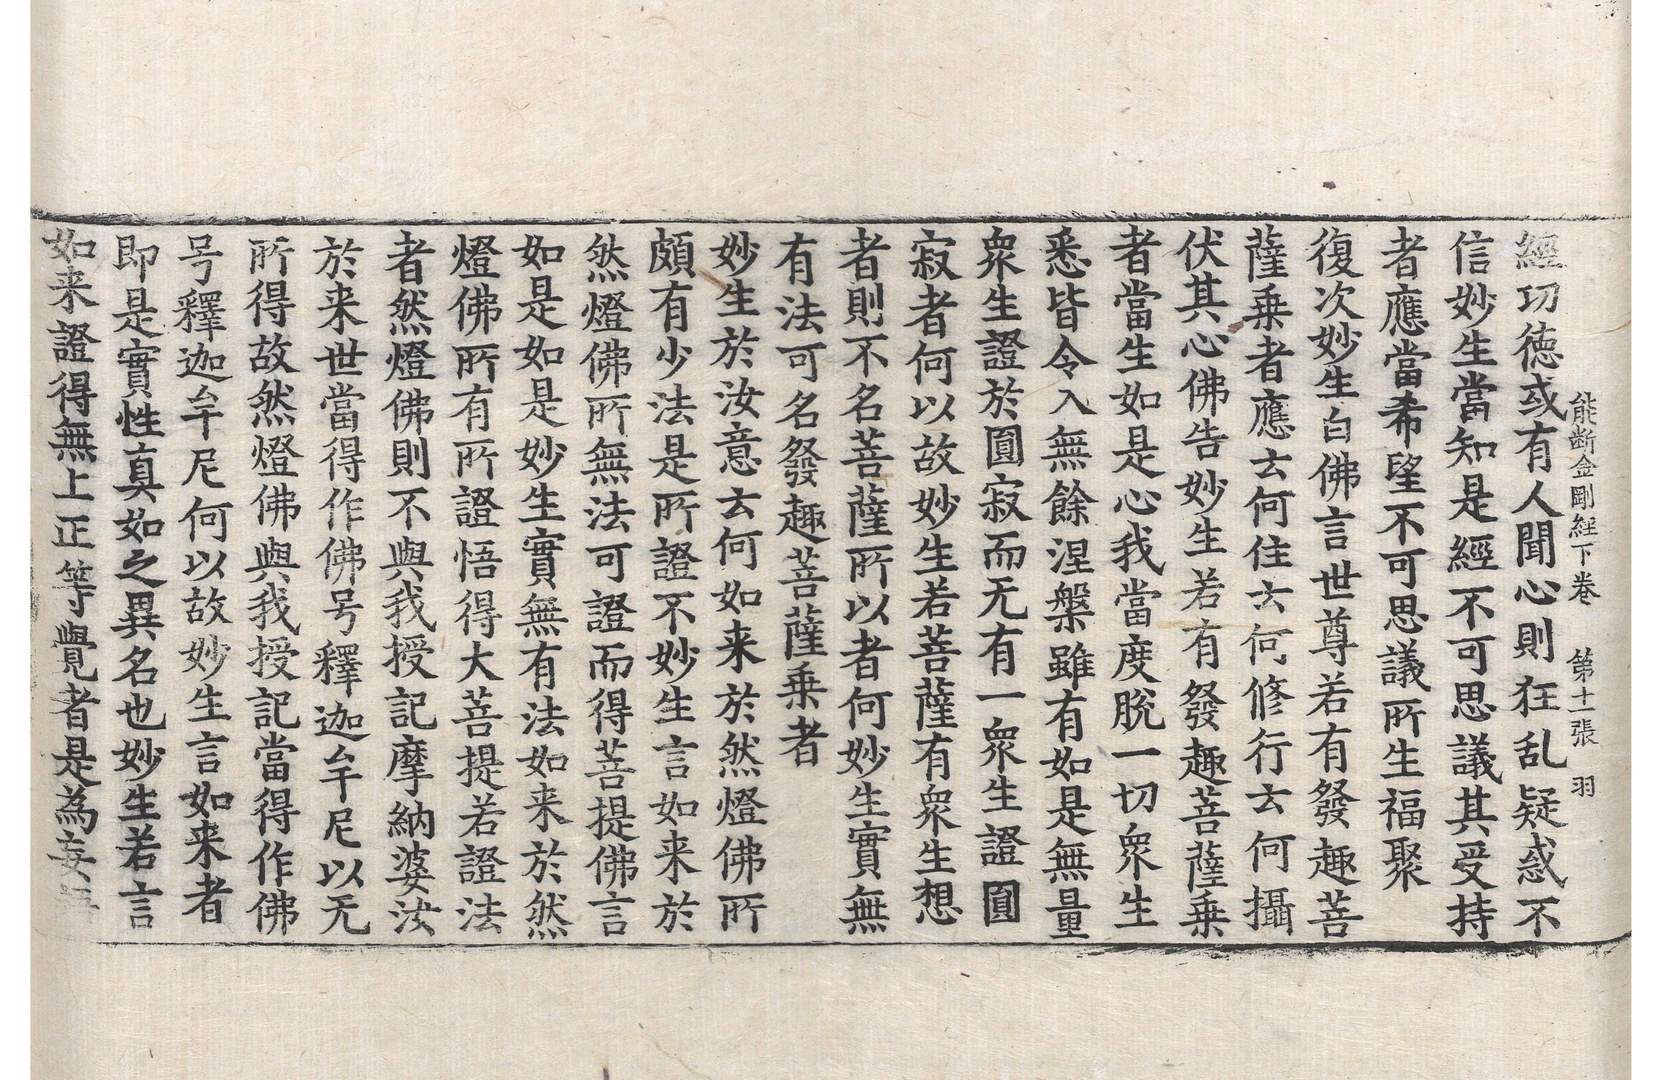 能断金剛經下卷 第十一張 羽
經功徳或有人聞心則狂乱疑惑不
信妙生當知是經不可思議其受持
者應當希望不可思議所生福聚
復次妙生白佛言世尊若有發趣菩
薩乗者應云何住云何修行云何攝
伏其心佛告妙生若有發趣菩薩乗
者當生如是心我當度脫一切衆生
悉皆令入無餘涅槃雖有如是無量
衆生證於圓寂而无有一衆生證圓
寂者何以故妙生若菩薩有衆生想
者則不名菩薩所以者何妙生實無
有法可名發趣菩薩乗者
妙生於汝意云何如来於然燈佛所
頗有少法是所證不妙生言如来於
然燈佛所無法可證而得菩提佛言
如是如是妙生實無有法如来於然
燈佛所有所證悟得大菩提若證法
者然燈佛則不與我授記摩納婆汝
於来世當得作佛号釋迦牟尼以无
所得故然燈佛與我授記當得作佛
号釋迦牟尼何以故妙生言如来者
即是實性真如之異名也妙生若言
如来證得無上正等覺者是為妄